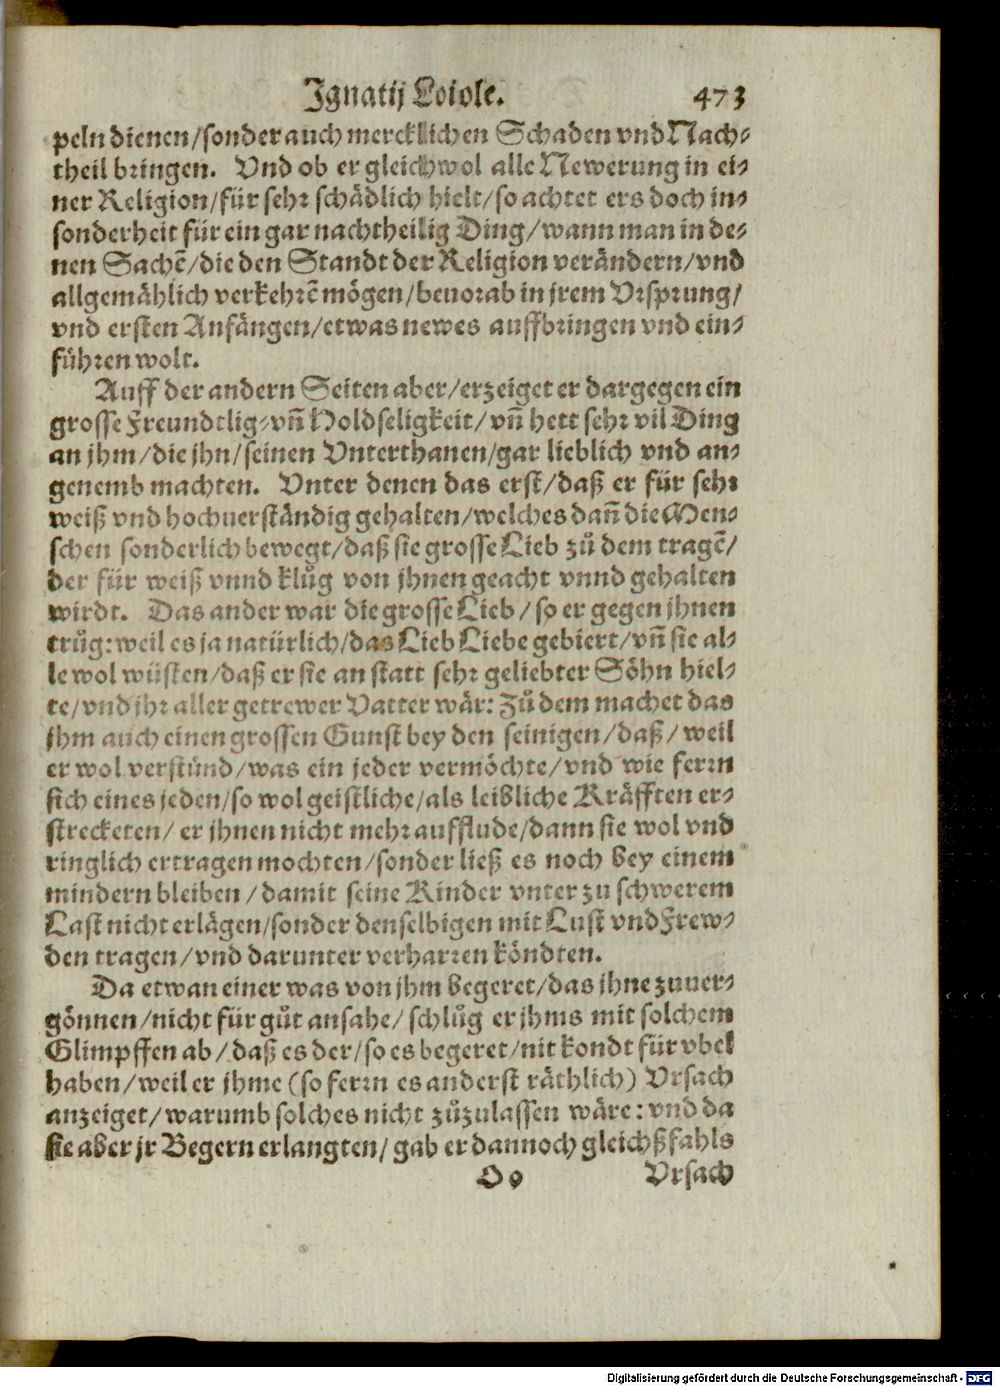 Ignatij Loiole. 473
peln dienen/sonder auch mercklichen Schaden vnd Nach-
theil bringen. Vnd ob er gleichwol alle Newerung in ei-
ner Religion/für sehr schädlich hielt/so achtet ers doch in-
sonderheit für ein gar nachtheilig Ding/wann man in de-
nen Sachẽ/die den Standt der Religion verändern/vnd
allgemählich verkehrẽ mögen/beuorab in jrem Vrsprung/
vnd ersten Anfängen/etwas newes auffbringen vnd ein-
führen wolt.
Auff der andern Seiten aber/erzeiget er dargegen ein
grosse Freundtlig-vñ Holdseligkeit/vñ hett sehr vil Ding
an jhm/die jhn/seinen Vnterthanen/gar lieblich vnd an-
genemb machten. Vnter denen das erst/daß er für sehr
weiß vnd hochuerständig gehalten/welches dañ die Men-
schen sonderlich bewegt/daß sie grosse Lieb zů dem tragẽ/
der für weiß vnnd klůg von jhnen geacht vnnd gehalten
wirdt. Das ander war die grosse Lieb/so er gegen jhnen
trůg: weil es ja natürlich/das Lieb Liebe gebiert/vñ sie al-
le wol wüsten/daß er sie an statt sehr geliebter Söhn hiel-
te/vnd jhr aller getrewer Vatter wär: Zů dem machet das
jhm auch einen grossen Gunst bey den seinigen/daß/weil
er wol verstünd/was ein jeder vermöchte/vnd wie ferrn
sich eines jeden/so wol geistliche/als leibliche Kräfften er-
strecketen/er jhnen nicht mehr auffflude/dann sie wol vnd
ringlich ertragen mochten/sonder ließ es noch bey einem
mindern bleiben/damit seine Kinder vnter zu schwerem
Last nicht erlägen/sonder denselbigen mit Lust vnd Frew-
den tragen/vnd darunter verharren köndten.
Da etwan einer was von jhm begeret/das jhne zuuer-
gönnen/nicht für gůt ansahe/schlůg er jhms mit solchem
Glimpffen ab/daß es der/so es begeret/nit kondt für vbel
haben/weil er jhme (so ferrn es anderst räthlich) Vrsach
anzeiget/warumb solches nicht zůzulassen wäre: vnd da
sie aber jr Begern erlangten/gab er dannoch gleichßfahls
Oo Vrsach
Digitalisierung gefördert durch die Deutsche Forschungsgemeinschaft - DFG